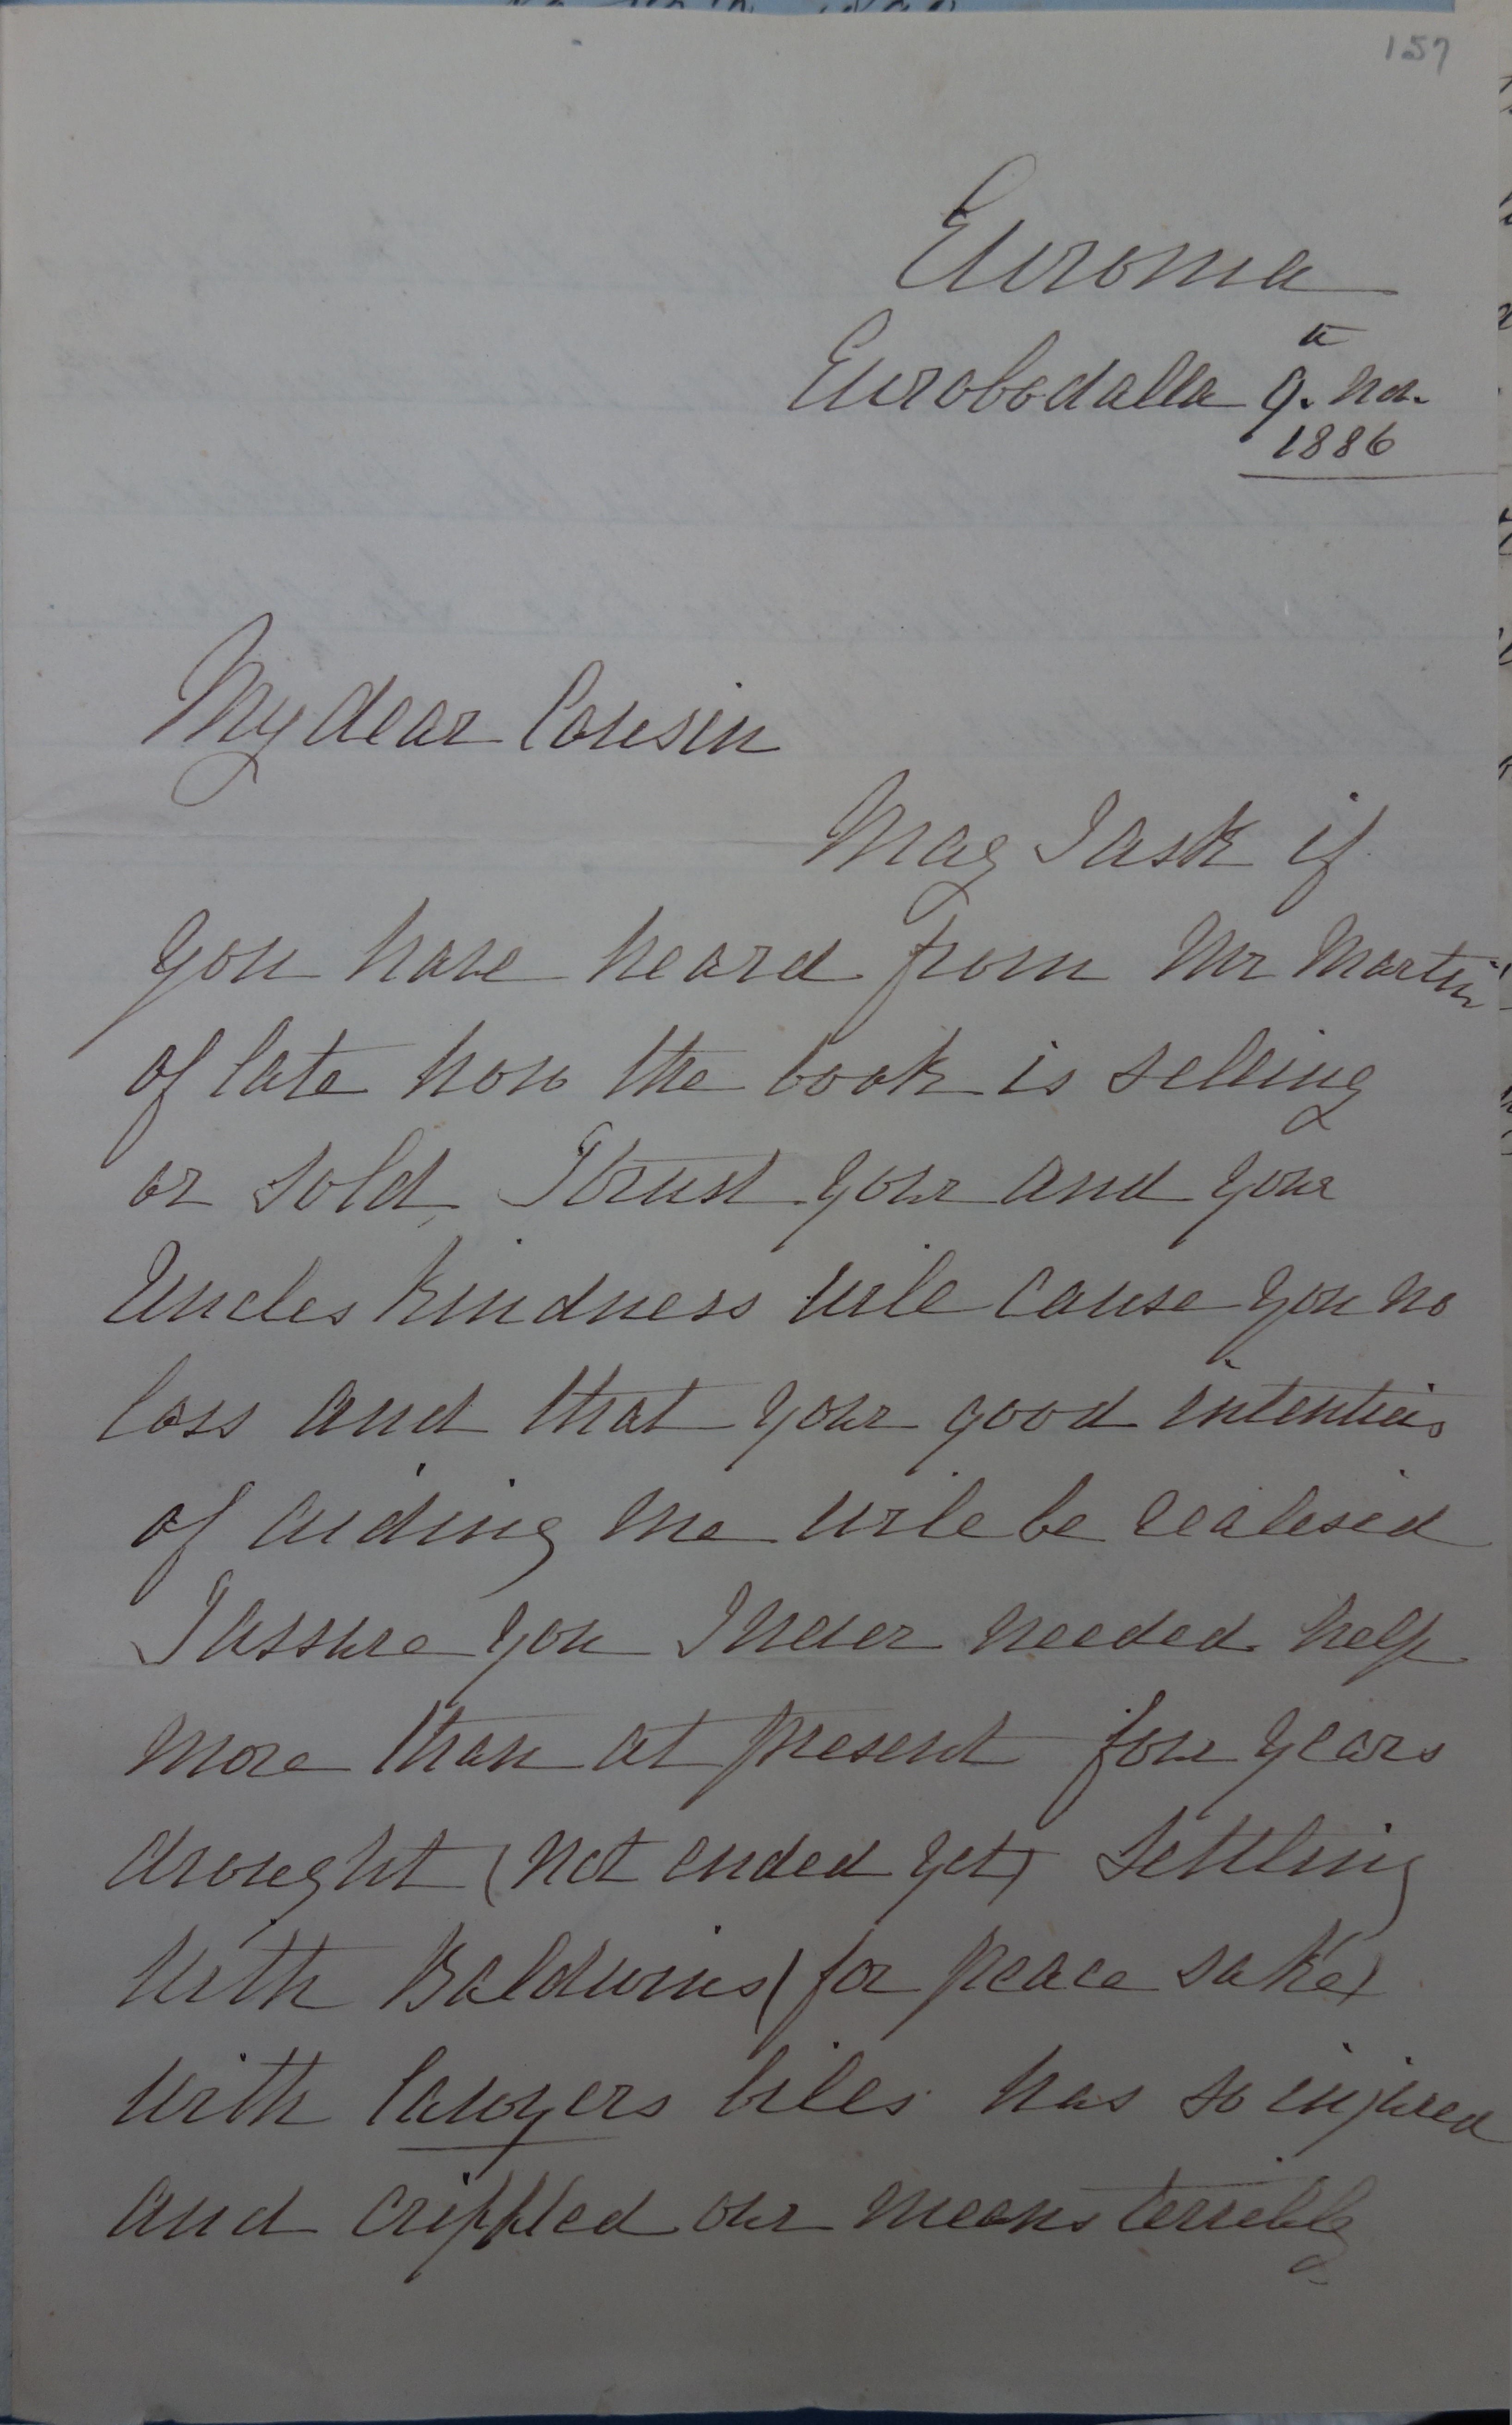 157
Euroma
Eurobodalla 9th No.
1886
My dear Cousin
May I ask if
you have heard from Mr Martin
of late how the book is selling
or sold. I trust your and your
Uncles kindness will cause you no
loss and that your good intentions
of aiding me will be realised
I assure you I never needed help
more than at present four years
drought (not ended yet) settling
with Baldwins (for peace sake)
with lawyers biles has so injured
and crippled our means terribly